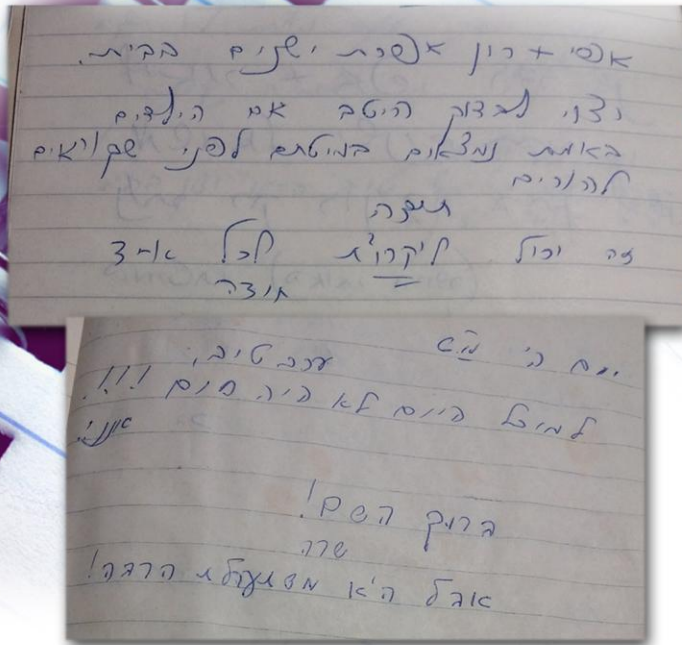 אפי + רון אפרת ישנים בבית.
רצוי לבדוק היטב אם הילדים
באמת נמצאים במיטתם לפני שקוראים
להורים
תודה
זה יכול ליקרות לכל אחד
תודה
יום ה'
ערב טוב,
למיכל היום לא היה חום !!!
ברוך השם!
שרה
אבל היא משתעלת הרבה!